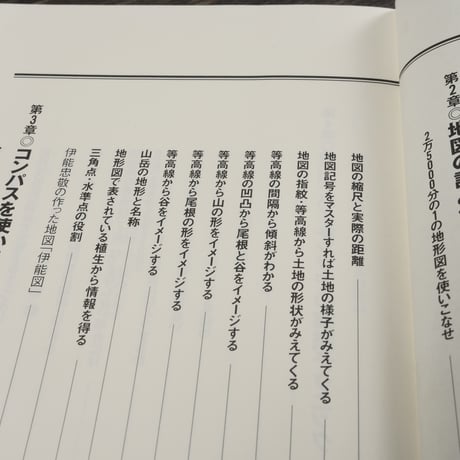 第2章◎地図の読
2万5000分の1の地形図を使いこなせ
地図の縮尺と実際の距離
地図記号をマスターすれば土地の様子がみえてくる
地図の指紋・等高線から土地の形状がみえてくる
等高線の間隔から傾斜がわかる
地図の凹凸から尾根と谷をイメージする
等高線から山の形をイメージする
等高線から尾根の形をイメージする
等高線から谷をイメージする
山岳の地形と名称
地形図で表されている植生から情報を得る
三角点・水準点の役割
伊能忠敬の作った地図「伊能図」
第3章◎コンパスを使い